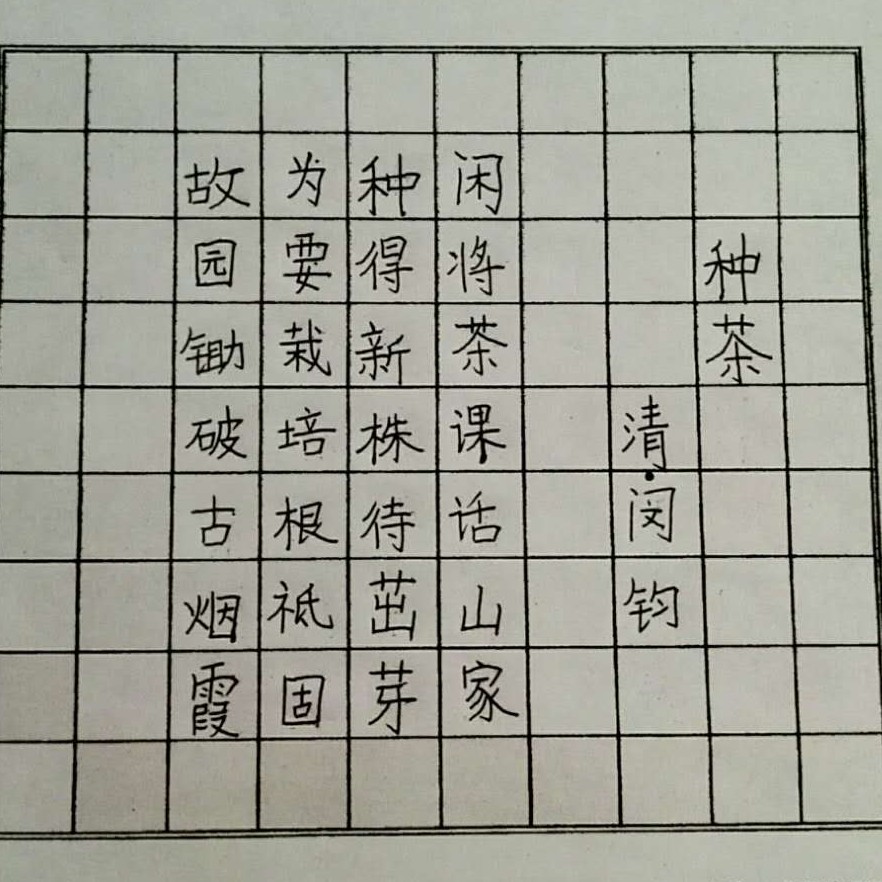 种茶
清·闵钧
闲将茶课话山家
种得新株待茁芽
为要栽培根祗固
故园锄破古烟霞